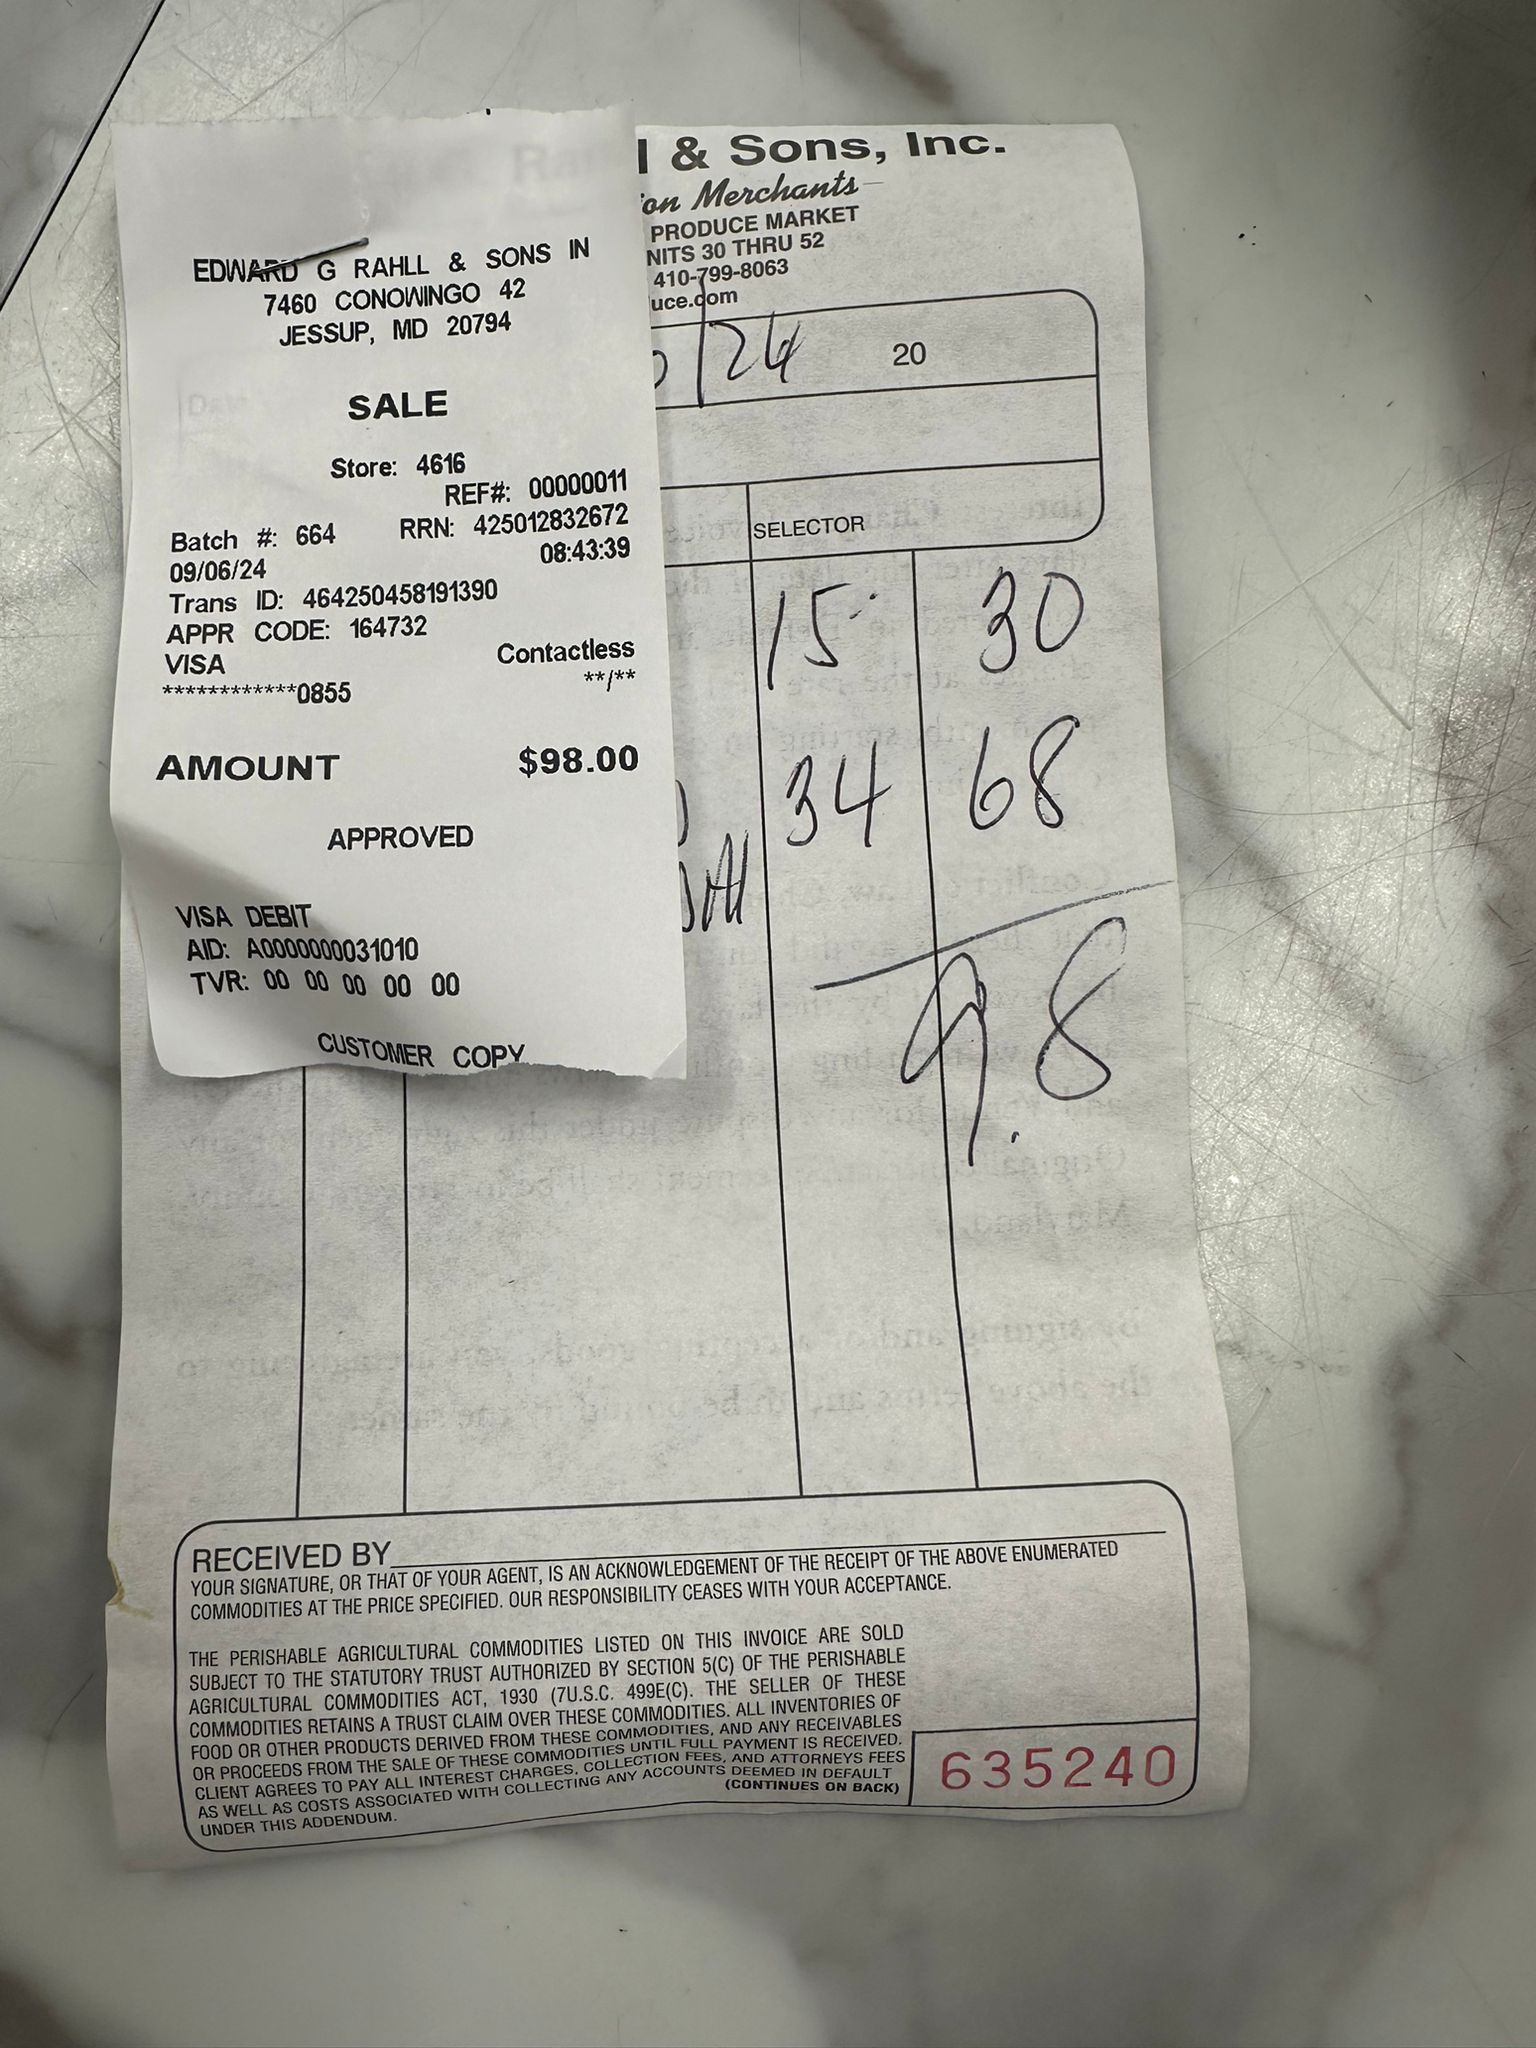 EDWARD G RAHLL & SONS IN
7460 CONOWINGO 42
JESSUP, MD 20794
SALE
Store: 4616
REF#: 00000011
Batch #: 664 RRN: 425012832672
09/06/24 08:43:39
Trans ID: 464250458191390
APPR CODE: 164732
VISA Contactless
************0855 **/**
AMOUNT $98.00
APPROVED
VISA DEBIT
AID: A0000000031010
TVR: 00 00 00 00 00
CUSTOMER COPY
l & Sons, Inc.
on Merchants
PRODUCE MARKET
NITS 30 THRU 52
410-799-8063
uce.com
/24 20
SELECTOR
15 30
34 68
98
RECEIVED BY
YOUR SIGNATURE, OR THAT OF YOUR AGENT, IS AN ACKNOWLEDGEMENT OF THE RECEIPT OF THE ABOVE ENUMERATED
COMMODITIES AT THE PRICE SPECIFIED. OUR RESPONSIBILITY CEASES WITH YOUR ACCEPTANCE.
THE PERISHABLE AGRICULTURAL COMMODITIES LISTED ON THIS INVOICE ARE SOLD
SUBJECT TO THE STATUTORY TRUST AUTHORIZED BY SECTION 5(C) OF THE PERISHABLE
AGRICULTURAL COMMODITIES ACT, 1930 (7U.S.C. 499E(C). THE SELLER OF THESE
COMMODITIES RETAINS A TRUST CLAIM OVER THESE COMMODITIES. ALL INVENTORIES OF
FOOD OR OTHER PRODUCTS DERIVED FROM THESE COMMODITIES, AND ANY RECEIVABLES
OR PROCEEDS FROM THE SALE OF THESE COMMODITIES UNTIL FULL PAYMENT IS RECEIVED.
CLIENT AGREES TO PAY ALL INTEREST CHARGES, COLLECTION FEES, AND ATTORNEYS FEES
AS WELL AS COSTS ASSOCIATED WITH COLLECTING ANY ACCOUNTS DEEMED IN DEFAULT
UNDER THIS ADDENDUM. (CONTINUES ON BACK)
635240